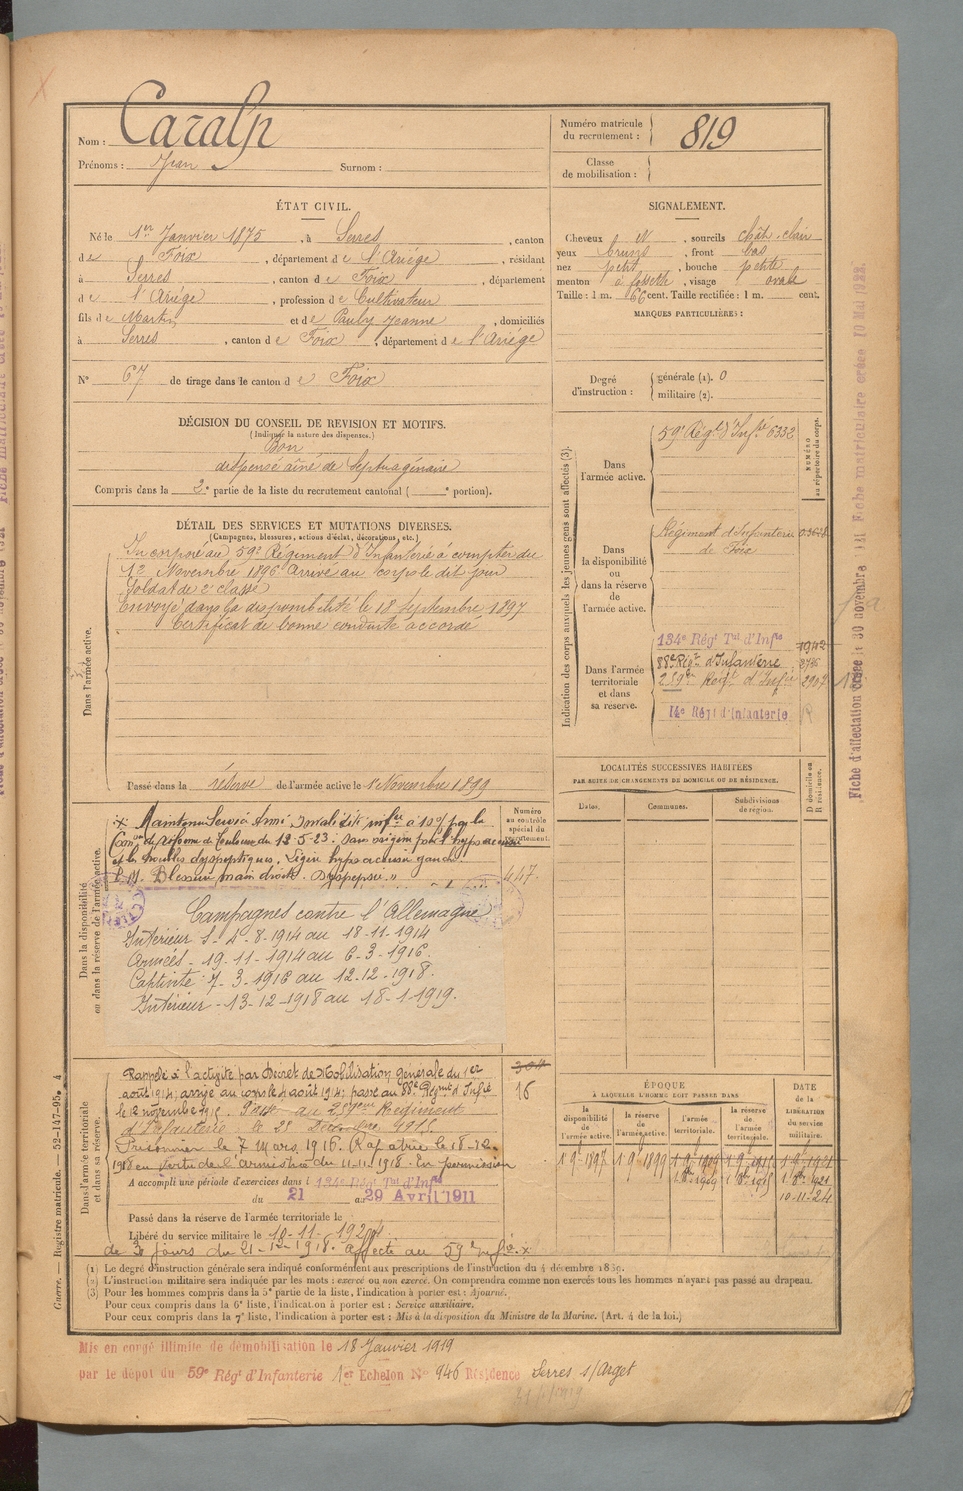 Nom : Caralp
Prénoms : Jean Surnom :
Numéro matricule du recrutement : 819
Classe de mobilisation :
ÉTAT CIVIL.
Né le 1er Janvier 1875, à Serres, canton
de Foix, département de l'Ariége, résidant
à Serres, canton de Foix, département
de l'Ariége, profession de Cultivateur
fils de Martin et de Pauly Jeanne, domiciliés
à Serres, canton de Foix, département de l'Ariége
N° 67 de tirage dans le canton de Foix
SIGNALEMENT.
Cheveux N, sourcils chât-clair
yeux bruns, front bas
nez petit, bouche petite
menton à fossette, visage ovale
Taille : 1 m. 66 cent. Taille rectifiée : 1 m. cent.
MARQUES PARTICULIÈRES :
Degré d'instruction : générale (1). 0
militaire (2).
DÉCISION DU CONSEIL DE REVISION ET MOTIFS.
(Indiquer la nature des dispenses.)
Bon
dispensé aîné de Septuagénaire
Compris dans la 2e partie de la liste du recrutement cantonal ( e portion).
DÉTAIL DES SERVICES ET MUTATIONS DIVERSES.
(Campagnes, blessures, actions d'éclat, décorations, etc.)
Dans l'armée active.
Incorporé au 59e Régiment d'Infanterie à compter du
12 Novembre 1896 Arrivé au corps le dit jour
Soldat de 2e classe
Envoyé dans la disponibilité le 18 septembre 1897
Certificat de bonne conduite accordé
Passé dans la réserve de l'armée active le 1er Novembre 1899
Indication des corps auxquels les jeunes gens sont affectés (3).
NUMÉRO au répertoire du corps.
Dans l'armée active.
59e Régt d'Infie 6332
Dans la disponibilité ou dans la réserve de l'armée active.
Régiment d'Infanterie
de Foix
Dans l'armée territoriale et dans sa réserve.
134e Régt Tal d'Infie 1942
88e Régt d'Infanterie
259e Regt d'Infie 2907
14e Régt d'Infanterie
LOCALITÉS SUCCESSIVES HABITÉES
PAR SUITE DE CHANGEMENTS DE DOMICILE OU DE RÉSIDENCE.
Dates. Communes. Subdivisions de région. D domicile ou R résidence.
Dans la disponibilité ou dans la réserve de l'armée active.
Numéro au contrôle spécial du recrutement.
447.
x Maintenu Service Armé Invalidité infre à 10% par la
Comon de réforme de Toulouse du 12-5-23 : sans origine pour l'hypoacousie
et les troubles dyspeptiques. Légère hypoacousie gauche
Blessure main droite. Dyspepsie
Campagnes contre l'Allemagne
Intérieur S- 4-8-1914 au 18-11-1914
Armées - 19-11-1914 au 6-3-1916.
Captivité 7-3-1916 au 12-12-1918.
Intérieur - 13-12-1918 au 18-1-1919.
Dans l'armée territoriale et dans sa réserve.
16
Rappelé à l'activité par Décret de Mobilisation générale du 1er
août 1914, arrivé au corps le 4 août 1914, passé au 88e Régmt d'Infie
le 12 novembre 1915. Passé au 259eme Régiment
d'Infanterie le 28 Décembre 1915.
Prisonnier le 7 mars 1916. Rapatrié le 18-12-
1918 en vertu de l'armistice du 11-11-1918. En permission
A accompli une période d'exercices dans l 134e Régt Tal d'Infie
du 21 au 29 Avril 1911
Passé dans la réserve de l'armée territoriale le
Libéré du service militaire le 10-11-1924
de 30 jours du 21-12-1918. affecté au 59e Infie. x
ÉPOQUE
À LAQUELLE L'HOMME DOIT PASSER DANS
la disponibilité de l'armée active. la réserve de l'armée active. l'armée territoriale. la réserve de l'armée territoriale.
DATE DE LA LIBÉRATION DU service militaire.
1 9 1897 1 9 1899 1 9 1909 1 9 1915 1 9 1921
1 8bre 1909 1 8bre 1915 1 8bre 1921
10-11-24
(1) Le degré d'instruction générale sera indiqué conformément aux prescriptions de l'instruction du 4 décembre 1889.
(2) L'instruction militaire sera indiquée par les mots : exercé ou non exercé. On comprendra comme non exercés tous les hommes n'ayant pas passé au drapeau.
(3) Pour les hommes compris dans la 5e partie de la liste, l'indication à porter est : Ajourné.
Pour ceux compris dans la 6e liste, l'indication à porter est : Service auxiliaire.
Pour ceux compris dans la 7e liste, l'indication à porter est : Mis à la disposition du Ministre de la Marine. (Art. 4 de la loi.)
Guerre. — Registre matricule. — 52-147-95. 4
Mis en congé illimité de démobilisation le 18 Janvier 1919
par le dépôt du 59e Régt d'Infanterie 1er Echelon N° 946 Résidence Serres s/Arget
Fiche d'affectation créée le 30 novembre 1921 Fiche matriculaire créée 10 Mai 1922.